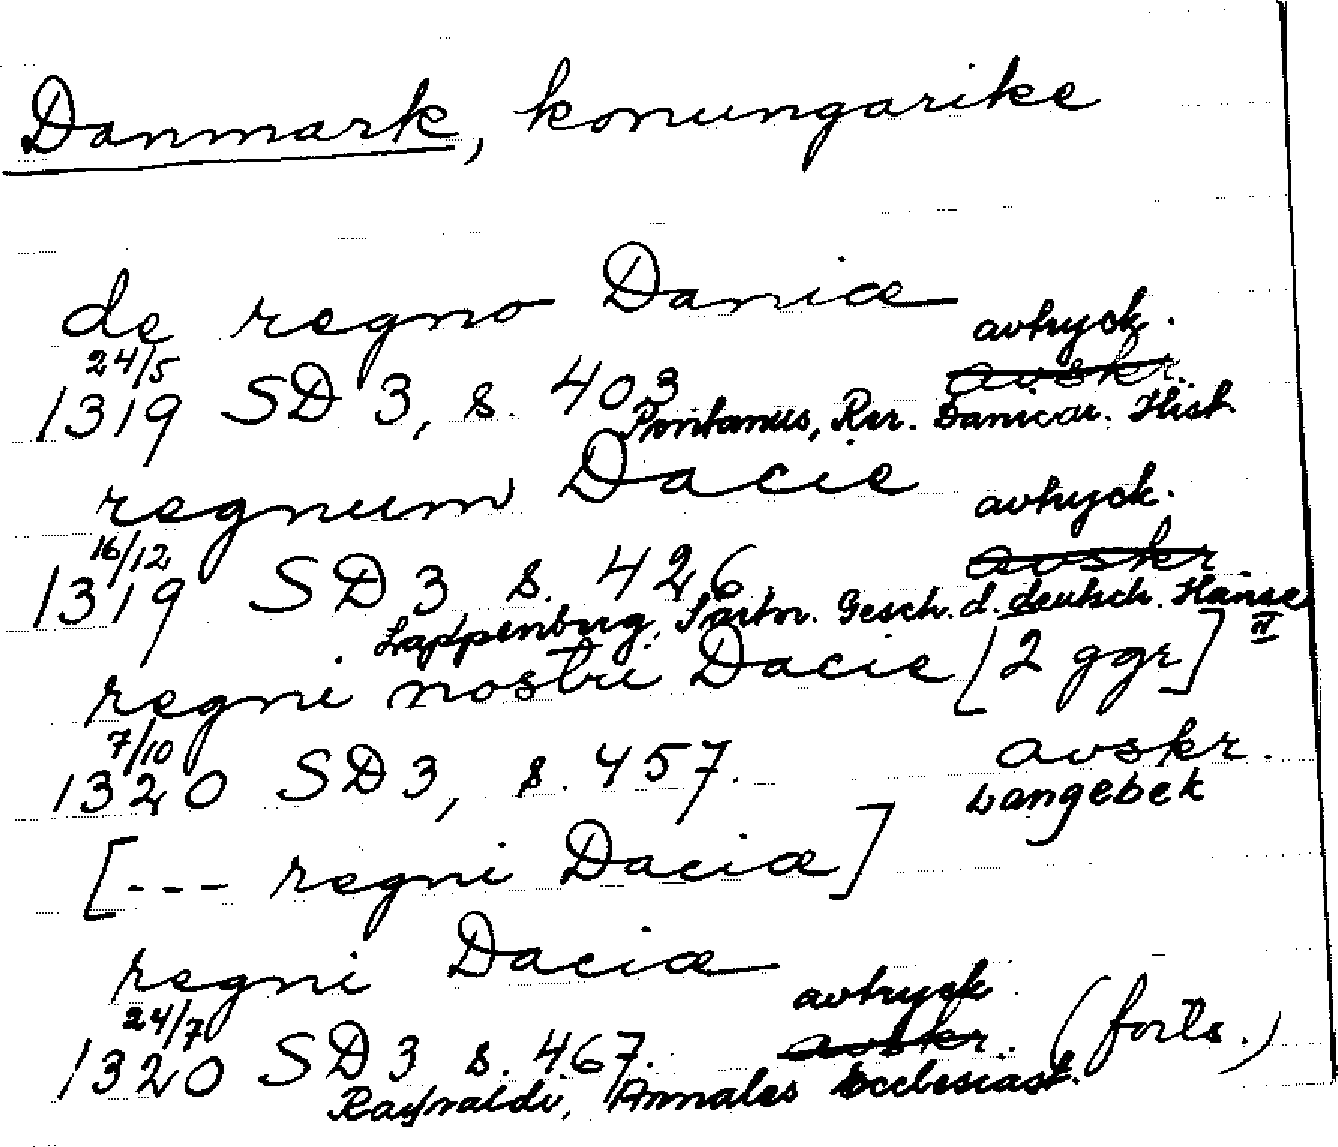 Danmark, konungarike
de regno Daniæ avtryck.
24/5 avskr.
1319 SD 3, s. 403
Pontanus, Rer. Danicar. Hist
regnum Dacie avtryck.
16/12 avskr
1319 SD 3 s. 426
Lappenberg, Gesch. d. deutsch. Hanse II
regni nostri Dacie [2 ggr]
7/10
1320 SD 3, s. 457. avskr.
Langebek
[--- regni Daciæ]
regni Daciæ
24/7 avtryck
1320 SD 3 s. 467. avskr. (forts.)
Raynaldi, Annales Ecclesiast.